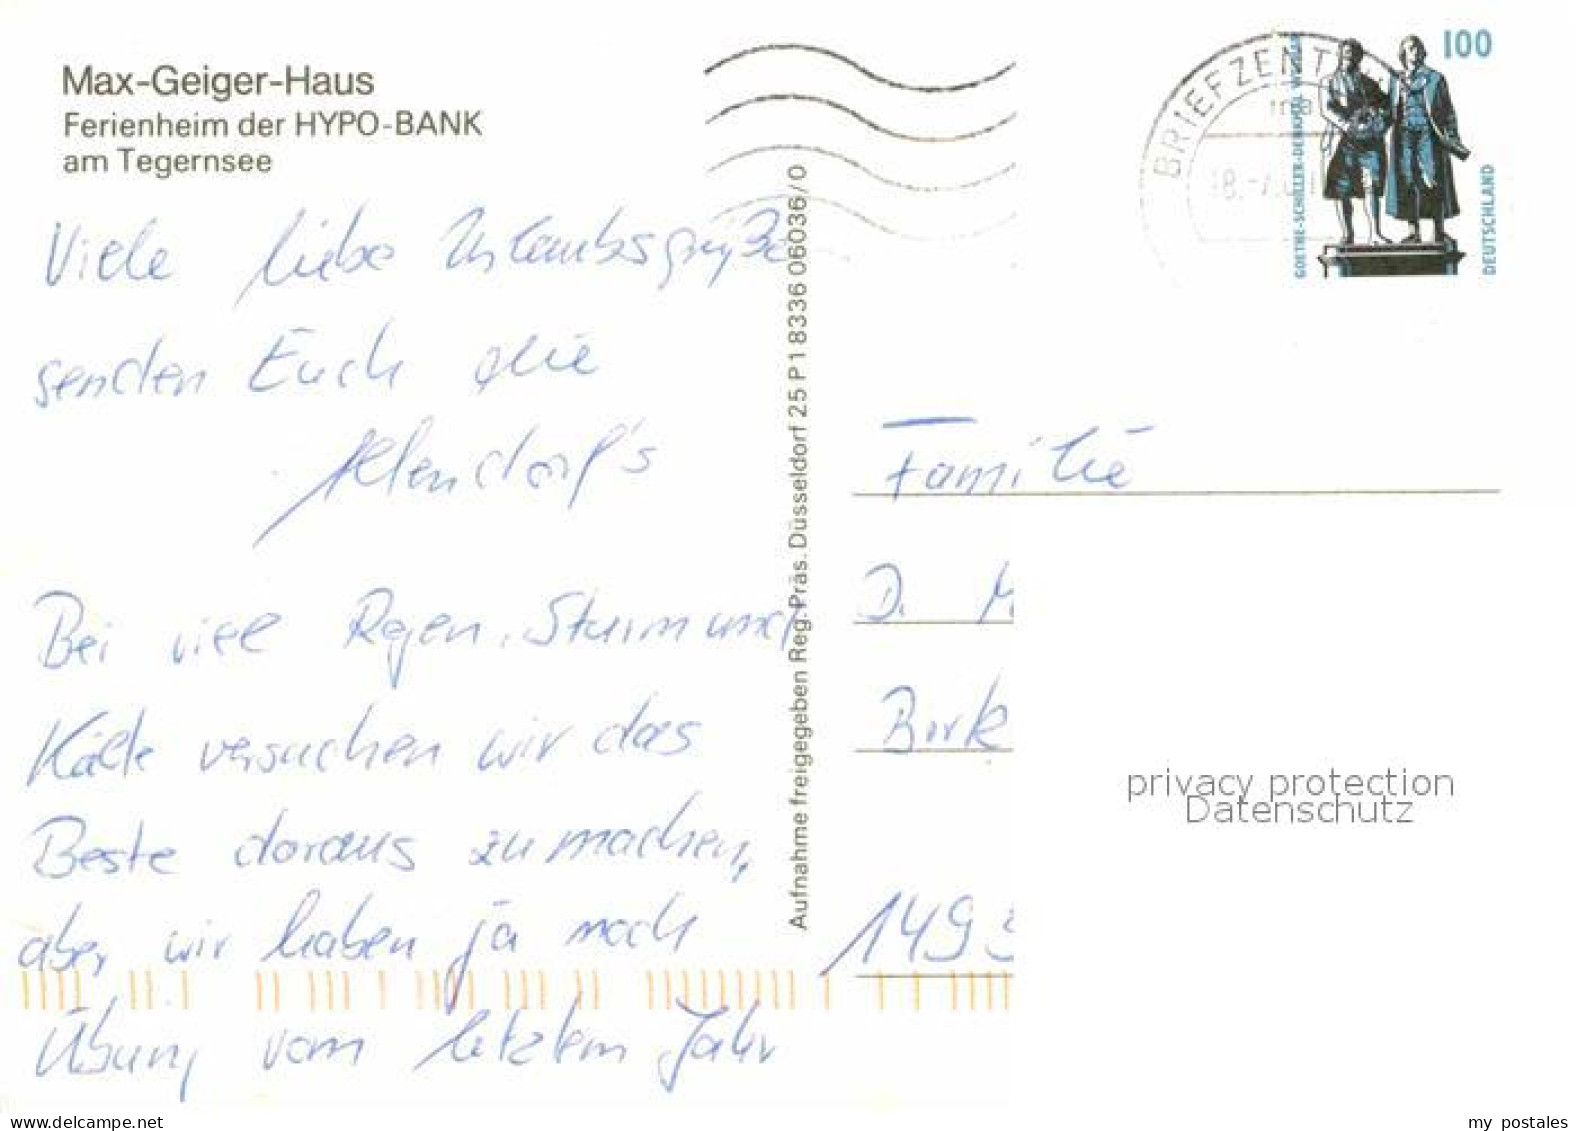 Max-Geiger-Haus
Ferienheim der HYPO-BANK
am Tegernsee
Viele liebe Urlaubsgrüße
senden Euch die
Bei viel Regen, Sturm und
Kälte versuchen wir das
Beste daraus zu machen,
aber wir haben ja noch
Übung vom letztem Jahr
Aufnahme freigegeben Reg. Präs. Düsseldorf 25 P 1 8336 06036/0
BRIEFZENT
GOETHE-SCHILLER-DENKMAL WEIMAR
100
DEUTSCHLAND
Familie
D. M
Birk
privacy protection
Datenschutz
1493
my postales